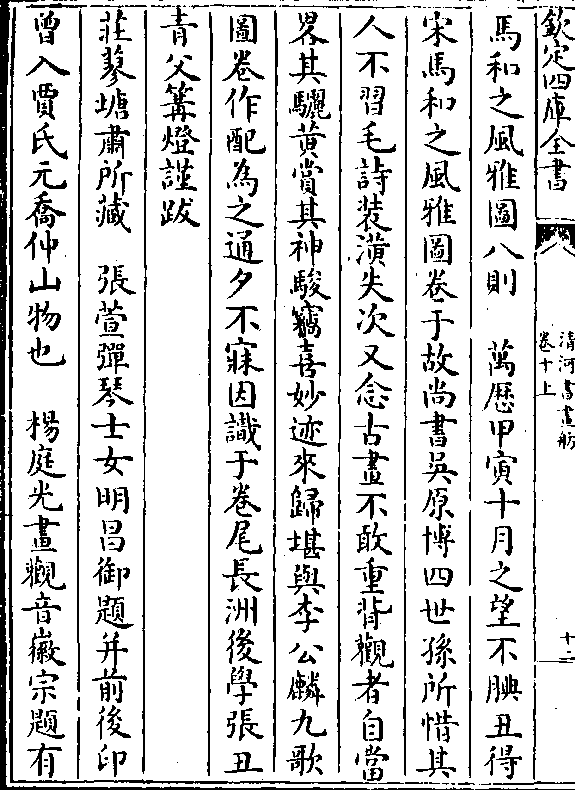 欽定四庫全書
清河書畫舫
卷十上
十二
馬和之風雅圖八則　萬歷甲寅十月之望不腆丑得
宋馬和之風雅圖卷于故尚書吳原博四世孫所惜其
人不習毛詩装潢失次又念古畫不敢重背觀者自當
畧其驪黄賞其神駿竊喜妙迹來歸堪與李公麟九歌
圖卷作配為之通夕不寐因識于卷尾長洲後學張丑
青父篝燈謹跋
莊蓼塘肅所藏　張萱彈琴士女明昌御題并前後印
曾入賈氏元喬仲山物也　楊庭光畫觀音徽宗題有